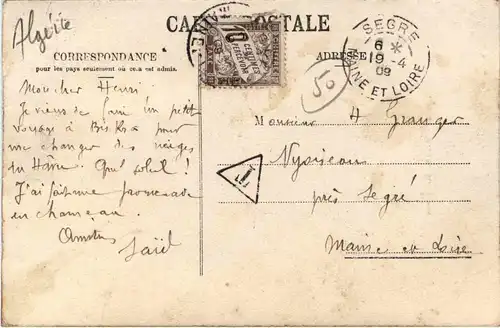 Algérie
CARTE POSTALE
CORRESPONDANCE
pour les pays seulement où cela est admis.
ADRESSE
SEGRÉ
6 *
19 -4
09
MAINE ET LOIRE
10 CENTIMES
À PERCEVOIR
50
T
Mon cher Henri
Je viens de faire un petit
voyage à Biskra pour
me changer des neiges
du Hâvre. Quel soleil !
J'ai fait une promenade
en chameau.
Saïd
Monsieur H Granger
près Segré
Maine et Loire